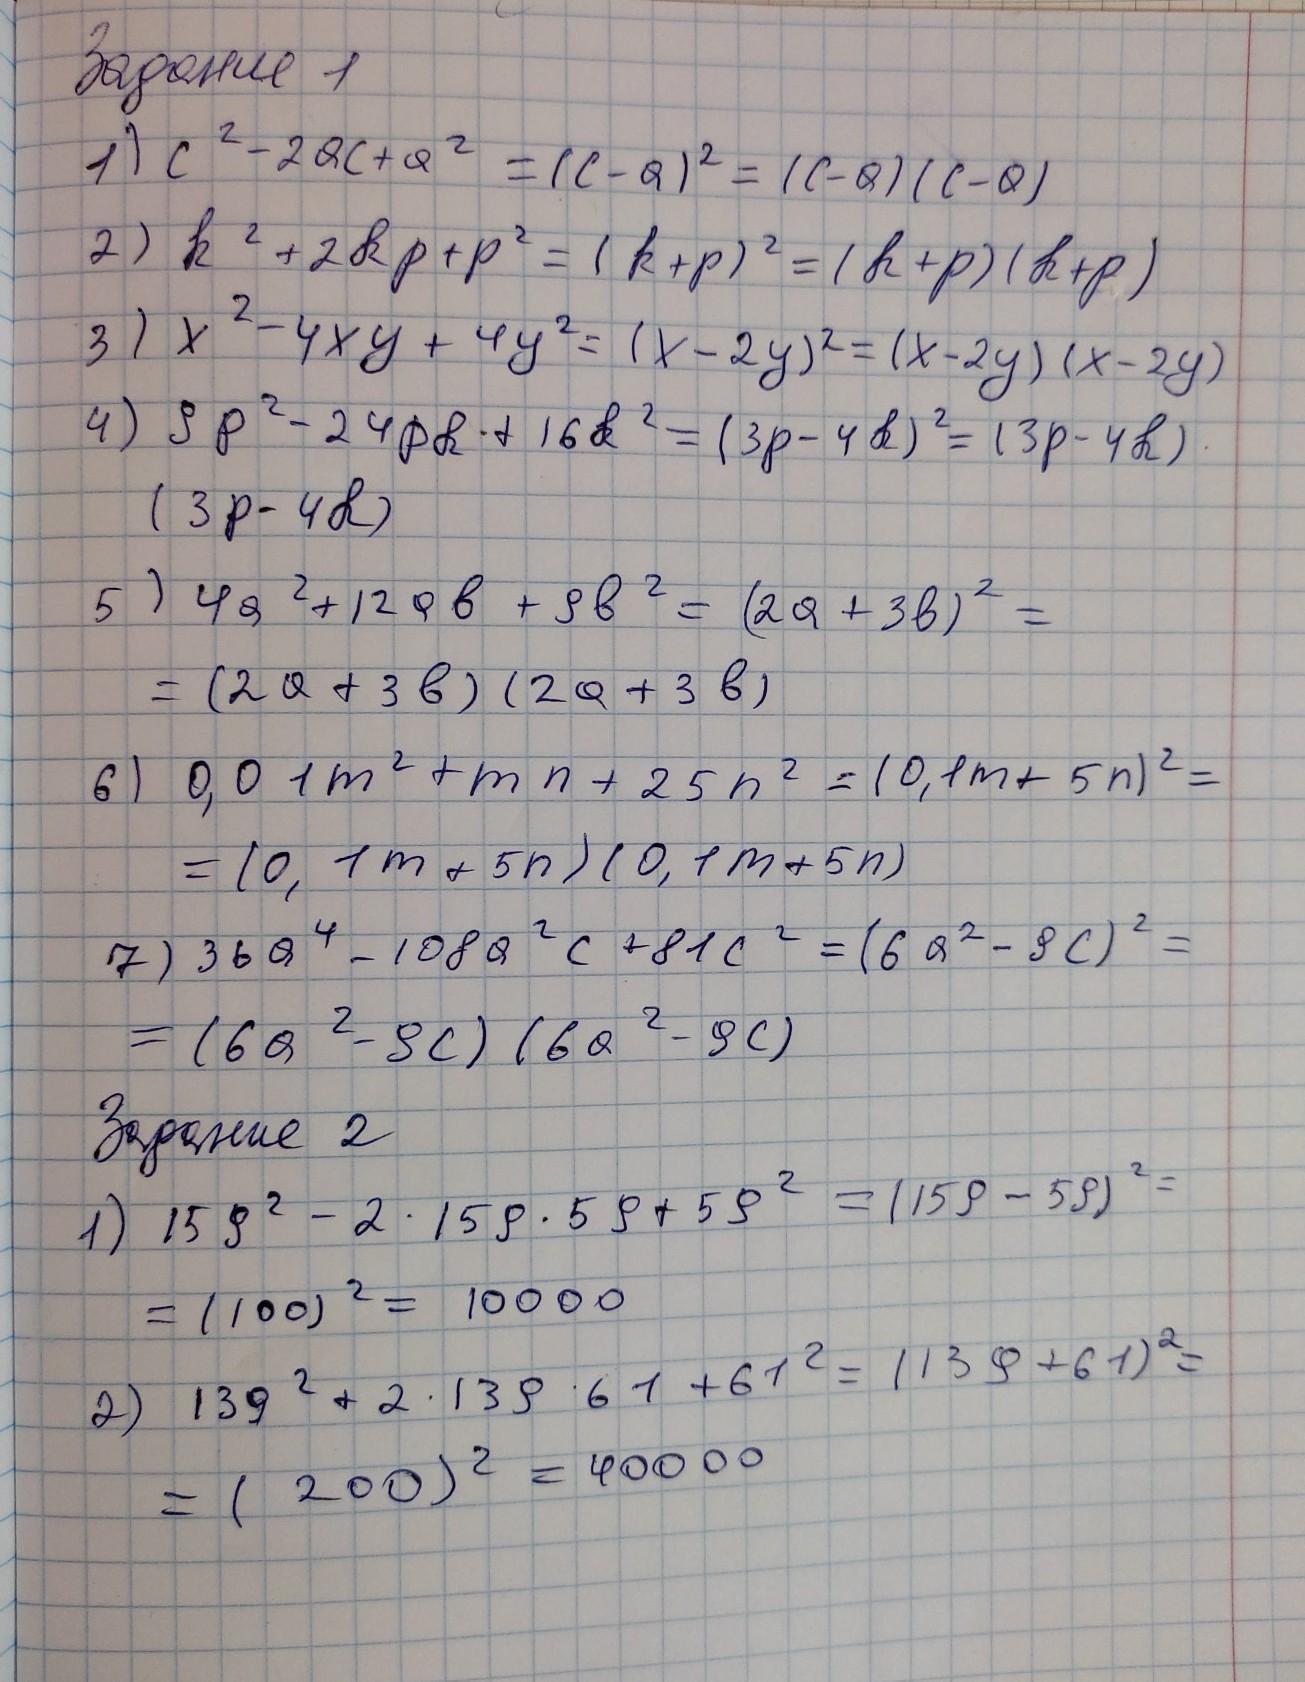 Задание 1
1) c² - 2ac + a² = (c - a)² = (c - a) (c - a)
2) k² + 2kp + p² = (k + p)² = (k + p) (k + p)
3) x² - 4xy + 4y² = (x - 2y)² = (x - 2y) (x - 2y)
4) 9p² - 24pk + 16k² = (3p - 4k)² = (3p - 4k) ·
(3p - 4k)
5) 4a² + 12ab + 9b² = (2a + 3b)² =
= (2a + 3b) (2a + 3b)
6) 0,01m² + mn + 25n² = (0,1m + 5n)² =
= (0,1m + 5n) (0,1m + 5n)
7) 36a⁴ - 108a²c + 81c² = (6a² - 9c)² =
= (6a² - 9c) (6a² - 9c)
Задание 2
1) 159² - 2 · 159 · 59 + 59² = (159 - 59)² =
= (100)² = 10000
2) 139² + 2 · 139 · 61 + 61² = (139 + 61)² =
= (200)² = 40000